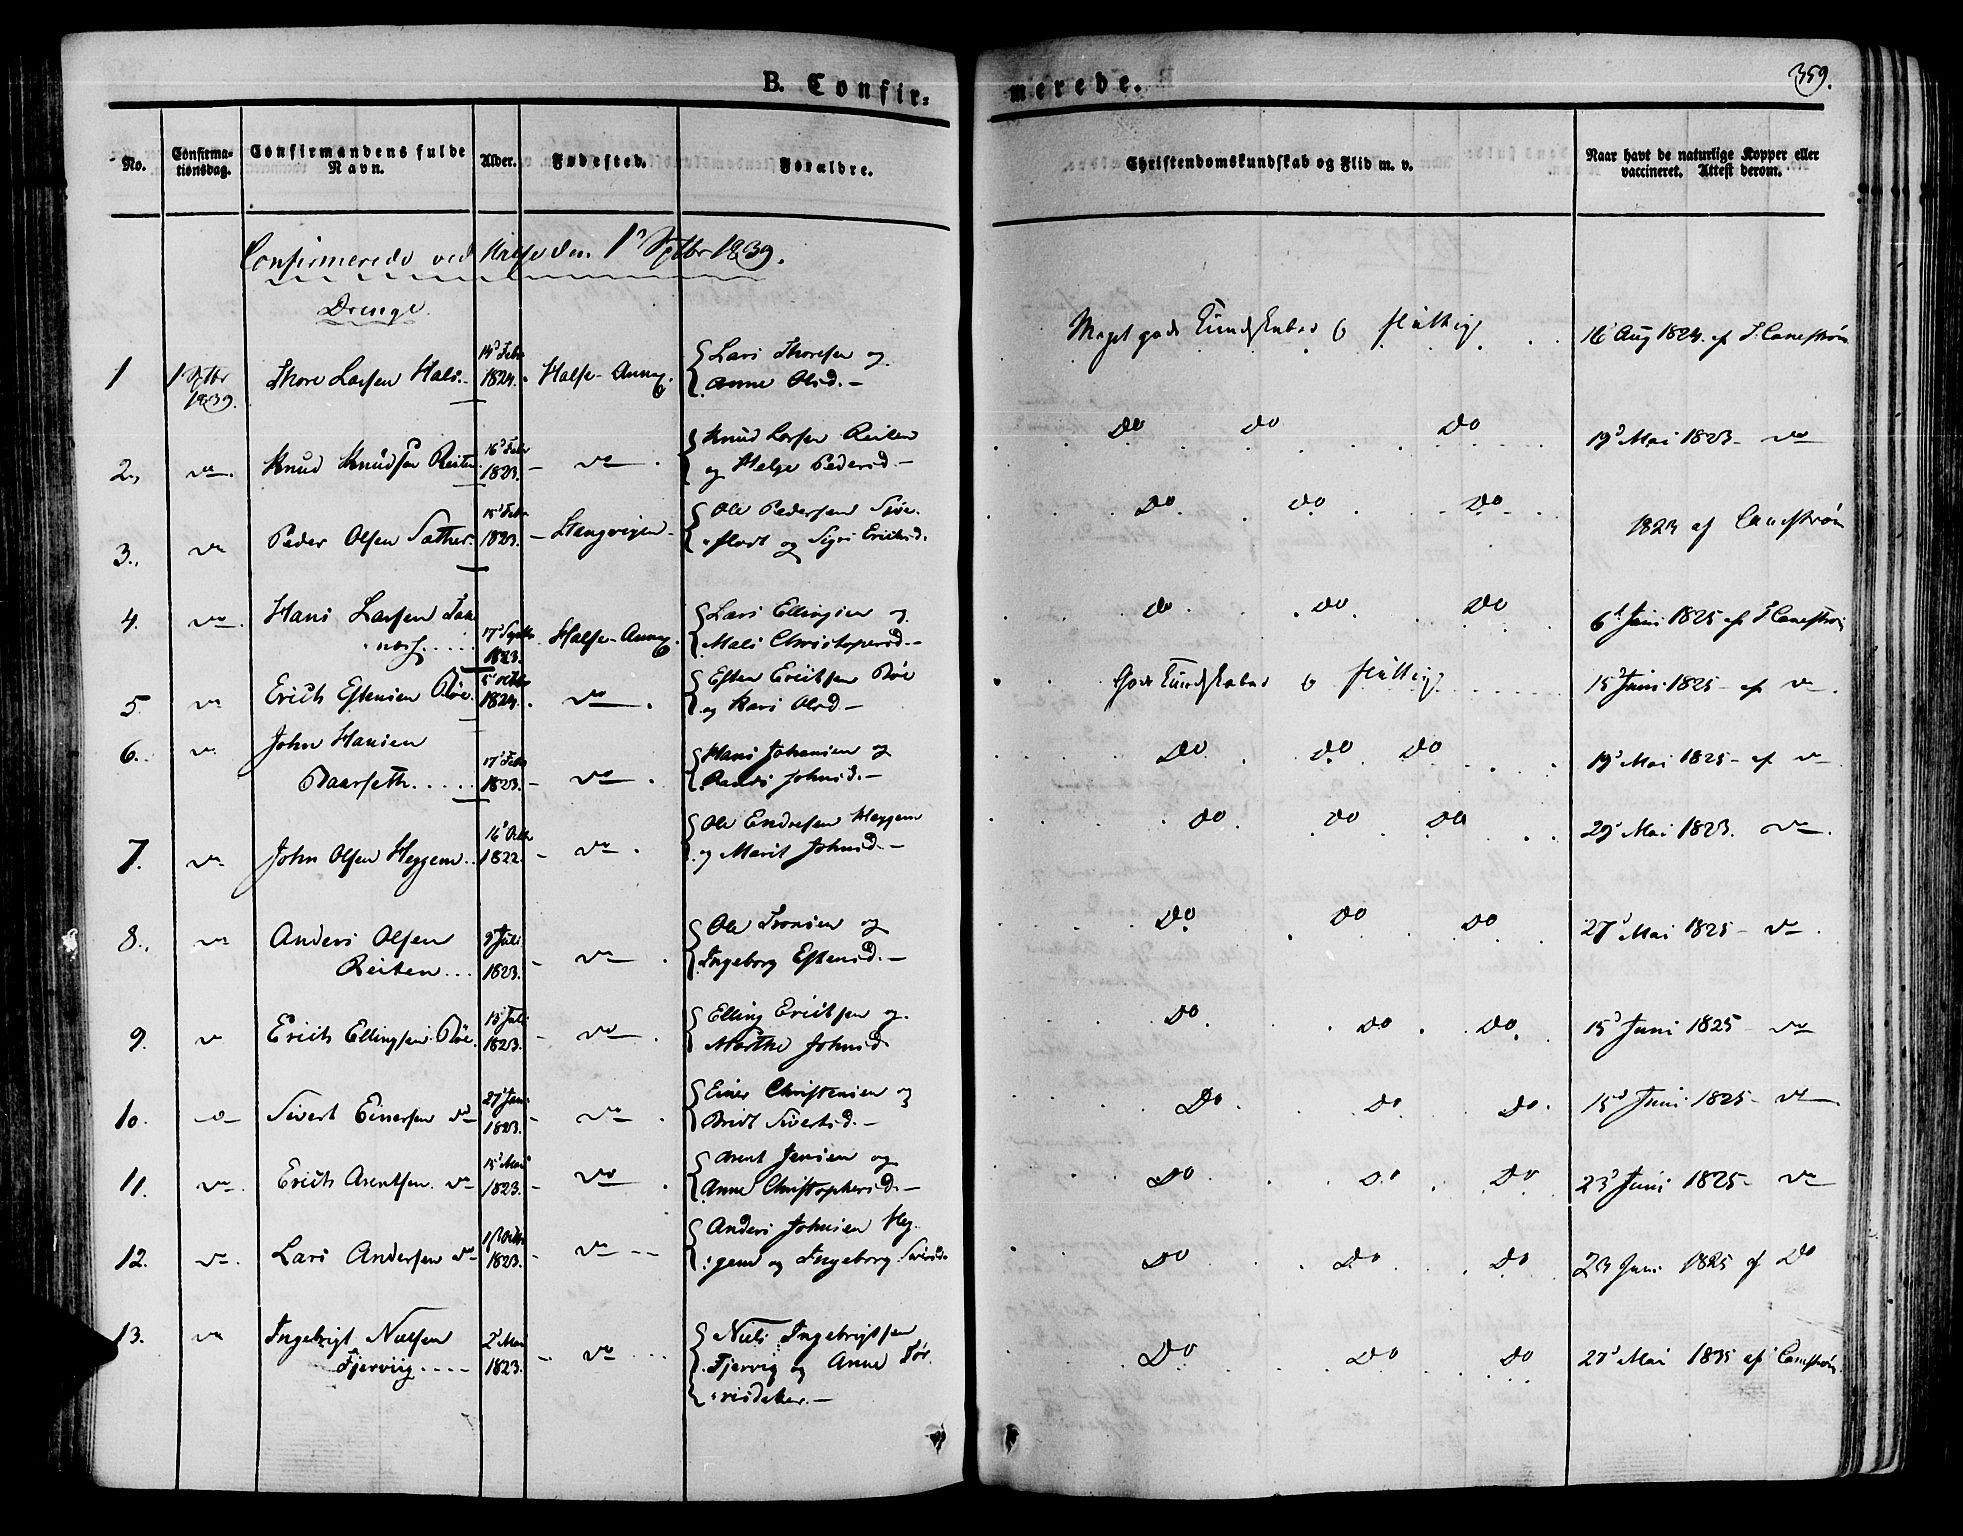 B. Confir=
merede.
359.
No.
Confirma-
tionsdag.
Confirmandens fulde
Navn.
Alder.
Fødested.
Forældre.
Christendomskundskab og Flid m. v.
Naar havt de naturlige Kopper eller
vaccineret. Attest derom.
Confirmerede ved Halse den 1 Sptbr 1839.
Drenge.
1
1 Sptbr
1839.
Thore Larsen Hals.
14 Febr
1824.
Halse-Annex.
Lars Thoresen og
Anne Olsd.
Meget gode Kundskaber og flittig
16 Aug 1824 af Canestrøm
2.
do
Knud Knudsen Reiten
16 Febr
1823.
do
Knud Larsen Reiten
og Helge Pedersd.
Do Do Do
19 Mai 1823 do
3.
do
Peder Olsen Sæther
15 Febr
1823.
Stangvigen
Ole Pedersen
og Sigri Erichsd.
Do Do Do
1823 af Canestrøm
4.
do
Hans Larsen
næs
17 Septbr
1823.
Halse-Annex.
Lars Ellingsen og
Mali Christopersd.
do Do Do
6 Juni 1825 af Canestrøm
5.
do
Erich Estensen Røe
5 Octbr
1824.
do
Esten Erichsen Røe
og Kari Olsd
Gode Kundskaber og flittig
15 Juni 1825 af do.
6.
do
John Hansen
Baarseth
17 Febr
1823.
do
Hans Johansen og
Randi Johnsd.
Do Do Do
19 Mai 1825 af do
7.
do
John Olsen Heggem
16 Octbr
1822.
do
Ole Endresen Heggem
og Marit Johnsd.
Do Do Do
29 Mai 1823. do
8.
do
Anders Olsen
Reiten
9 Juli
1823.
do
Ole Tronsen og
Ingeborg Estensd.
Do Do Do
27 Mai 1825 do
9.
do
Erich Ellingsen Røe.
13 Juli
1823.
do
Elling Erichsen og
Marthe Johnsd
Do Do Do
15 Juni 1825 do
10.
do
Sivert Einersen do
27 Jan
1823.
do
Einer Christensen og
Brit Sivertsd.
Do Do Do
15 Juni 1825 do
11.
do
Erich Arentsen do
15 Mai
1823.
do
Arent Jensen og
Anne Christophersd.
Do Do Do
23 Juni 1825 do
12.
do
Lars Andersen do
Octbr
1823.
do
Anders Johnsen Heg-
gem og Ingeborg Siversd.
Do Do Do
23 Juni 1825 af Do
13.
do
Ingebrigt Nielsen
Fjervig
2 Mai
1823.
do
Niels Ingebrigtsen
Fjervig og Anne Tør-
risdatter.
Do Do Do
27 Mai 1835 af Canestrøm